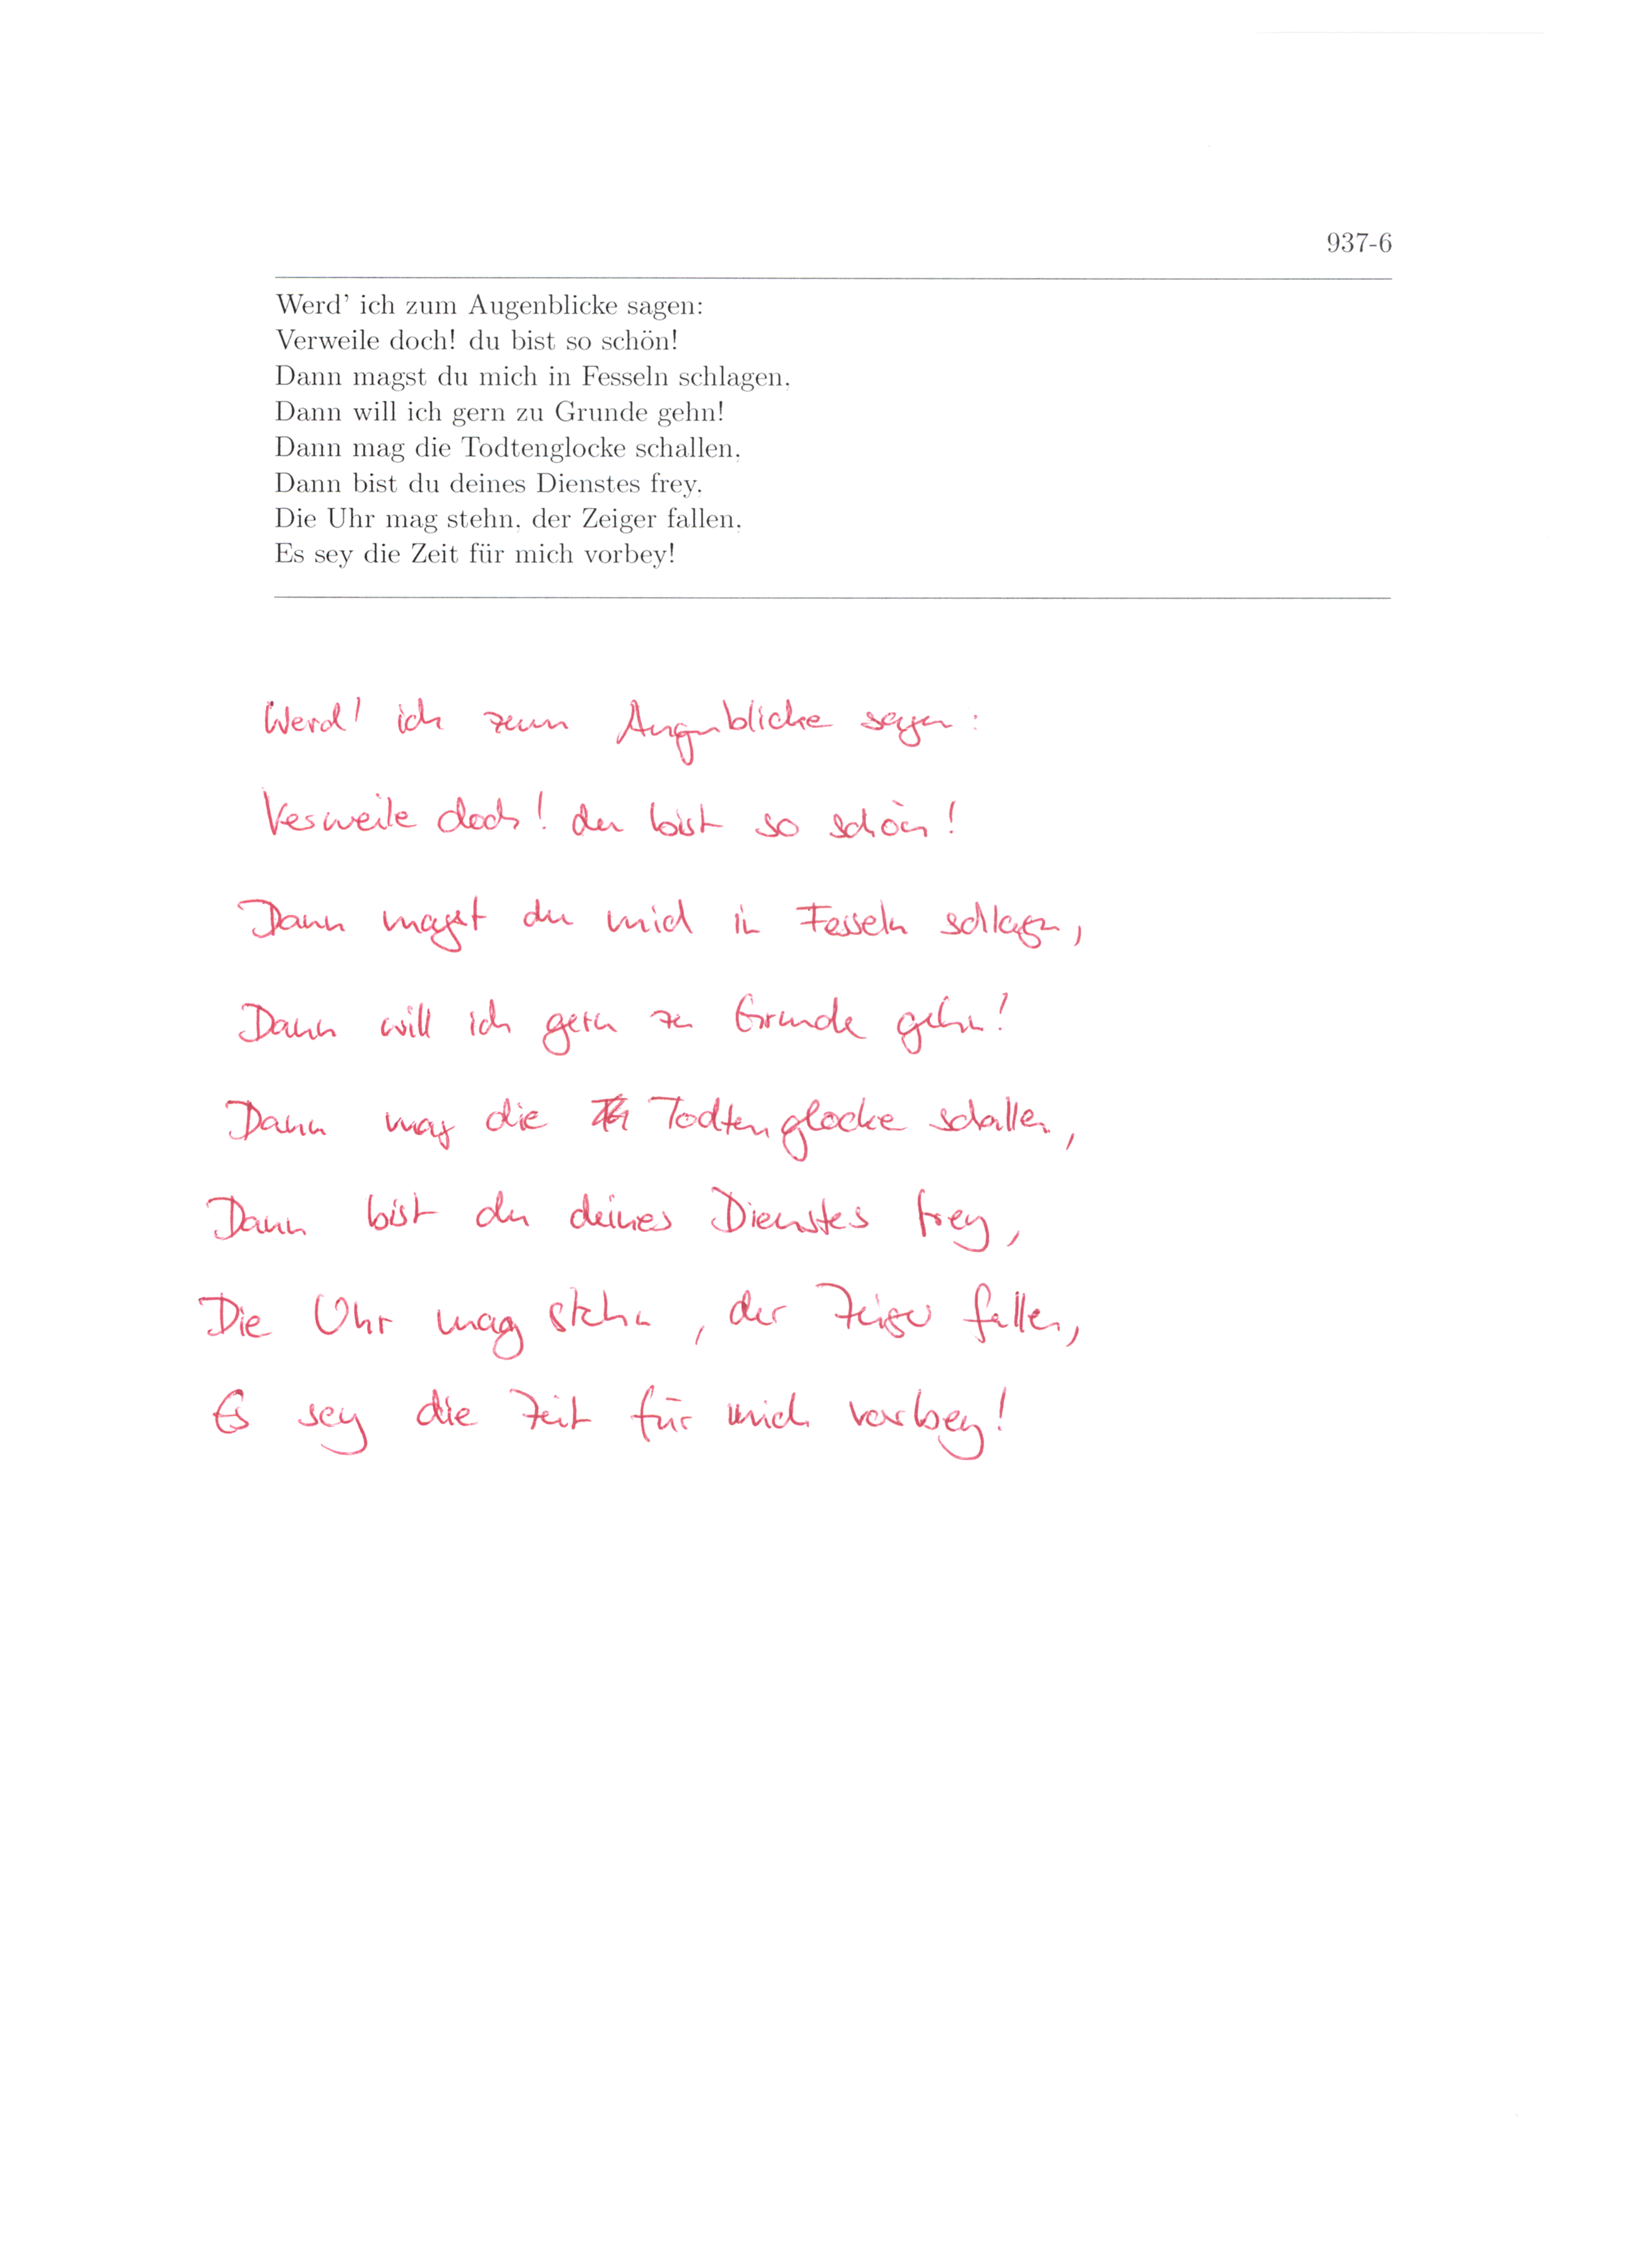 937-6
Werd' ich zum Augenblicke sagen:
Verweile doch! du bist so schön!
Dann magst du mich in Fesseln schlagen,
Dann will ich gern zu Grunde gehn!
Dann mag die Todtenglocke schallen,
Dann bist du deines Dienstes frey,
Die Uhr mag stehn, der Zeiger fallen,
Es sey die Zeit für mich vorbey!
Werd' ich zum Augenblicke sagen:
Verweile doch! du bist so schön!
Dann magst du mich in Fesseln schlagen,
Dann will ich gern zu Grunde gehn!
Dann mag die Todtenglocke schallen,
Dann bist du deines Dienstes frey,
Die Uhr mag stehn, der Zeiger fallen,
Es sey die Zeit für mich vorbey!